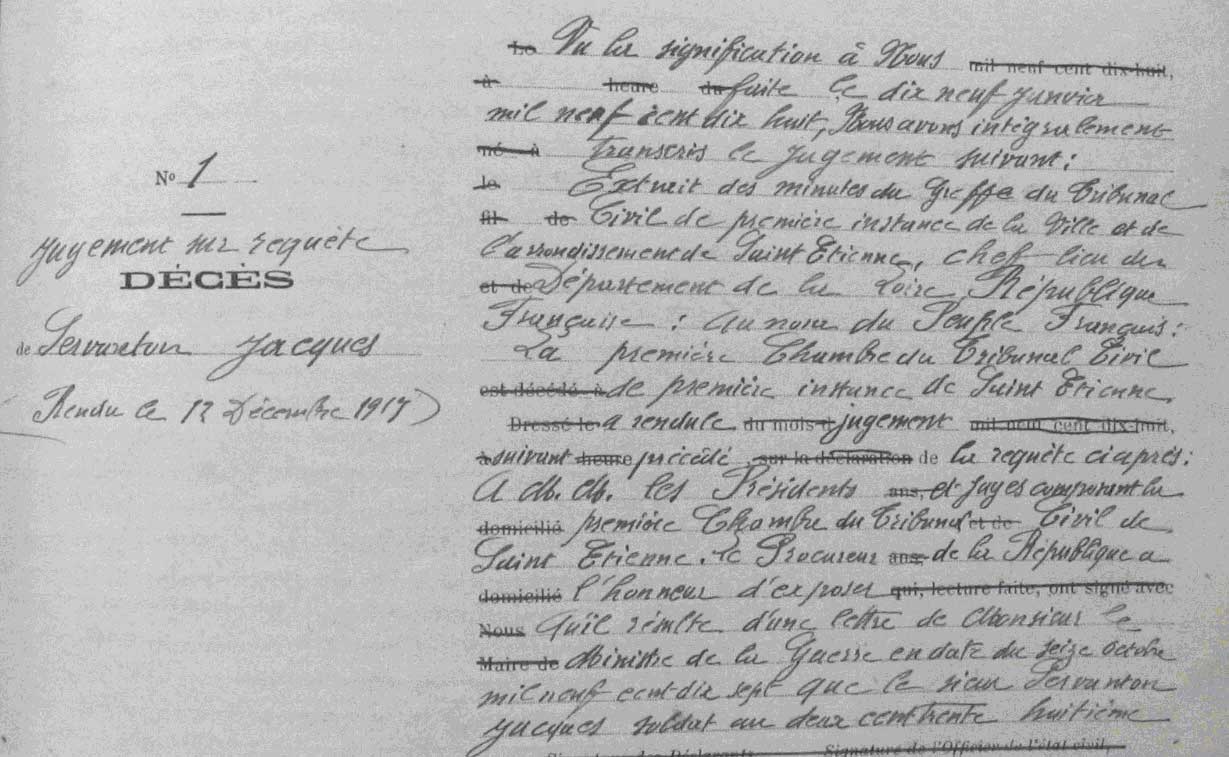 No 1
jugement sur requête
DÉCÈS
de Servanton Jacques
(Rendu le 12 Décembre 1917)
Le Vu la signification à Nous mil neuf cent dix-huit,
à heure du faite le dix neuf janvier
mil neuf cent dix huit, Nous avons intégralement
né à transcris le jugement suivant :
le Extrait des minutes du Greffe du Tribunal
fil de Civil de première instance de la Ville et de
l'arrondissement de Saint Etienne, chef lieu du
et de Département de la Loire, République
Française : Au nom du Peuple Français :
La première Chambre du Tribunal Civil
est décédé à de première instance de Saint Etienne
Dressé le a rendu le du mois d jugement mil neuf cent dix-huit,
à suivant heure précédé sur la déclaration de la requête ci après :
A M.M. les Présidents ans, et juges composant la
domicilié première Chambre du Tribunal et de Civil de
Saint Etienne. le Procureur ans, de la République a
domicilié l'honneur d'exposer qui, lecture faite, ont signé avec
Nous Qu'il résulte d'une lettre de Monsieur le
Maire de Ministre de la Guerre en date du seize octobre
mil neuf cent dix sept que le sieur Servanton
Jacques soldat au deux cent trente huitième
Signature des Déclarants, Signature de l'Officier de l'état civil,